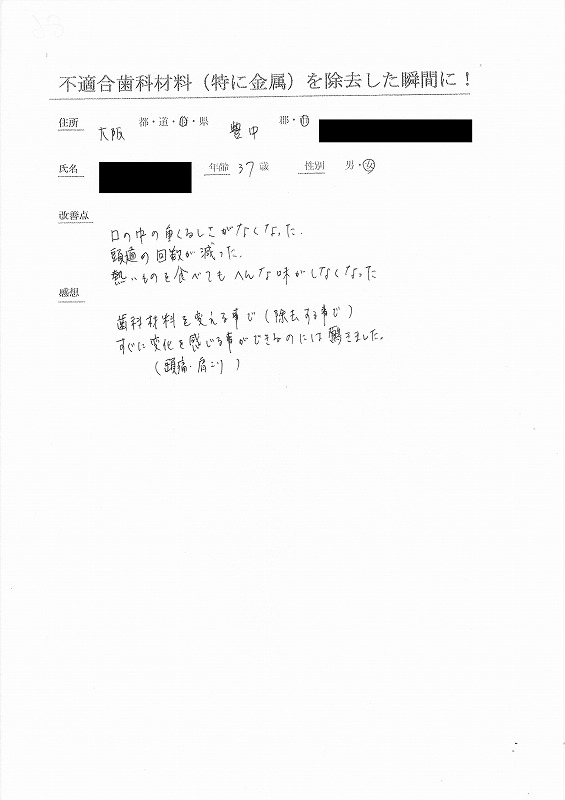 不適合歯科材料（特に金属）を除去した瞬間に！
住所 大阪 都・道・府・県 豊中 郡・市
氏名 年齢 37 歳 性別 男・女
改善点
口の中の重くるしさがなくなった.
頭痛の回数が減った.
熱いものを食べてもへんな味がしなくなった
感想
歯科材料を変える事で(除去する事で)
すぐに変化を感じる事ができるのには驚きました。
(頭痛・肩こり)